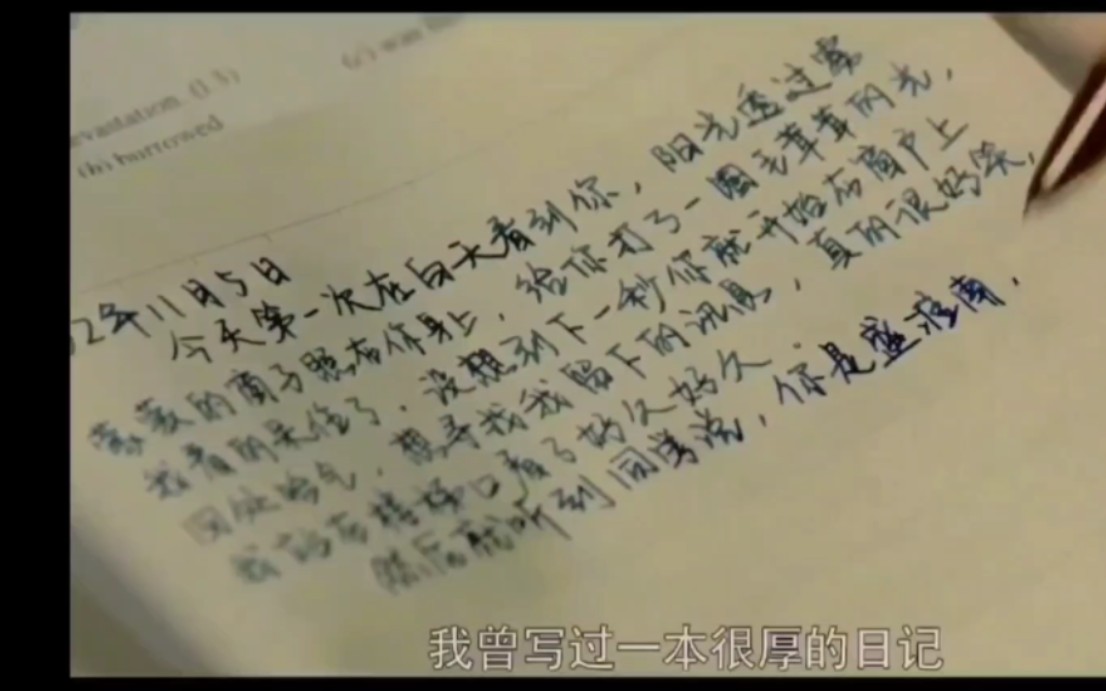 evantation. (l.3)
(b) burrowed
(c) was
12年11月5日
今天第一次在白天看到你，阳光透过雾
蒙蒙的窗子照在你身上，给你打了一圈毛茸茸的光，
我看的呆住了．没想到下一秒你就开始在窗户上
四处哈气，想寻找我留下的讯息，真的很好笑，
我站在楼梯口看了好久好久．
然后就听到同学说，你是盛淮南．
我曾写过一本很厚的日记